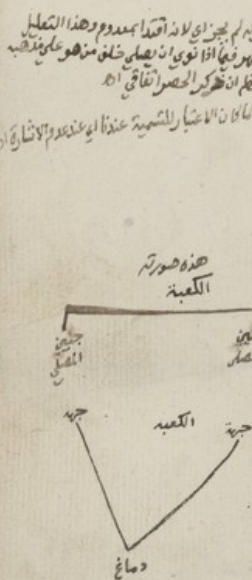 يه لم يجز اي لانه اقتدا بمعدوم وهذا التعليل
فيما اذا نوى ان يصلي خلف من هو على مذهبه
ان ذكر الحصر اتفاقي اه
كان الاعتبار للتسمية عندنا اي عند عدم الاشارة اه
هذه صورته
الكعبة
جبين
المصلي
بين
مصلي
جهة
الكعبه
جهة
دماغ